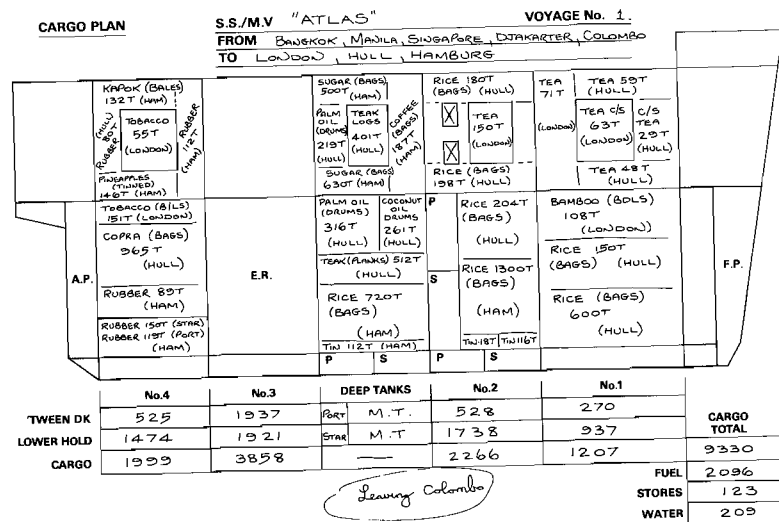 CARGO PLAN
S.S./M.V "ATLAS" VOYAGE No. 1.
FROM BANGKOK, MANILA, SINGAPORE, DJAKARTER, COLOMBO
TO LONDON, HULL, HAMBURG
KAPOK (BALES)
132T (HAM)
(HULL)
80T
RUBBER
TOBACCO
55T
(LONDON)
RUBBER
112T
(HAM)
PINEAPPLES
(TINNED)
146T (HAM)
SUGAR (BAGS)
500T
(HAM)
PALM
OIL
(DRUMS)
219T
(HULL)
TEAK
LOGS
401T
(HULL)
COFFEE
(BAGS)
187T
(HAM)
SUGAR (BAGS)
630T (HAM)
RICE 180T
(BAGS) (HULL)
TEA
150T
(LONDON)
RICE (BAGS)
198T (HULL)
TEA
71T
(LONDON)
TEA 59T
(HULL)
TEA C/S
63T
(LONDON)
C/S
TEA
29T
(HULL)
TEA 48T
(HULL)
A.P.
TOBACCO (BLS)
151T (LONDON)
COPRA (BAGS)
965T
(HULL)
RUBBER 89T
(HAM)
RUBBER 150T (STAR)
RUBBER 119T (PORT)
(HAM)
E.R.
PALM OIL
(DRUMS)
316T
(HULL)
COCONUT
OIL
DRUMS
261T
(HULL)
TEAK (PLANKS) 512T
(HULL)
RICE 720T
(BAGS)
(HAM)
TIN 112T (HAM)
P S
P
S
RICE 204T
(BAGS)
(HULL)
RICE 1300T
(BAGS)
(HAM)
TIN 118T TIN 116T
P S
BAMBOO (BDLS)
108T
(LONDON)
RICE 150T
(BAGS) (HULL)
RICE (BAGS)
600T
(HULL)
F.P.
No.4 No.3 DEEP TANKS No.2 No.1
'TWEEN DK 525 1937 PORT M.T. 528 270
LOWER HOLD 1474 1921 STAR M.T 1738 937
CARGO TOTAL
CARGO 1999 3858 — 2266 1207 9330
FUEL 2096
STORES 123
WATER 209
Leaving Colombo